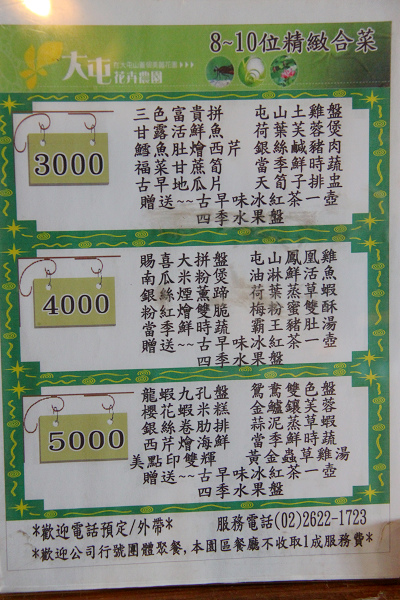 8~10位精緻合菜
大屯
花卉農園
3000
三色富貴拼 屯山土雞盤
甘露活鮮魚 荷葉芙蓉煲
鱈魚肚燴西芹 銀絲鹹豬肉
福菜甘蔗筍 當季鮮時蔬
古早地瓜片 天筍子排盅
贈送~~古早味冰紅茶一壺
四季水果盤
4000
賜喜大拼盤 屯山鳳凰雞
南瓜米粉煲 油淋鮮活魚
銀絲煙熏蹄 荷葉蒸草蝦
粉紅燴雙脆 梅粉蜜雙酥
當季鮮時蔬 霸王豬肚湯
贈送~~古早味冰紅茶一壺
四季水果盤
5000
龍蝦九孔盤 鴛鴦雙色盤
櫻花蝦米糕 金鱸鑲芙蓉
銀絲卷肋排 蒜泥蒸草蝦
西芹燴海鮮 當季鮮時蔬
美點印雙輝 黃金蟲草雞湯
贈送~~古早味冰紅茶一壺
四季水果盤
*歡迎電話預定/外帶* 服務電話(02)2622-1723
*歡迎公司行號團體聚餐,本園區餐廳不收取1成服務費*